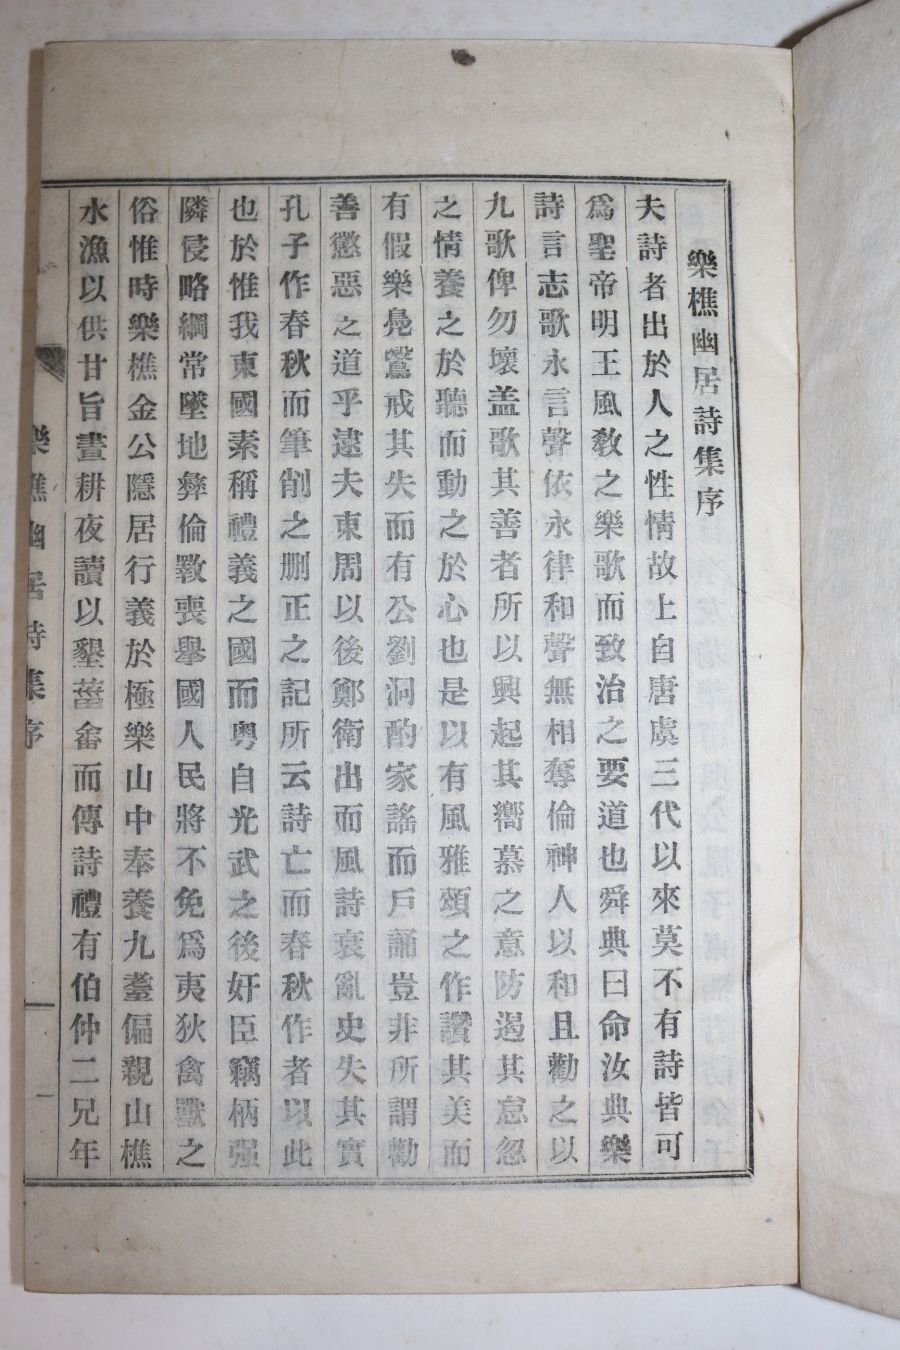 樂樵幽居詩集序
夫詩者出於人之性情故上自唐虞三代以來莫不有詩皆可
爲聖帝明王風敎之樂歌而致治之要道也舜典曰命汝典樂
詩言志歌永言聲依永律和聲無相奪倫神人以和且勸之以
九歌俾勿壞盖歌其善者所以興起其嚮慕之意防遏其怠忽
之情養之於聽而動之於心也是以有風雅頌之作讚其美而
有假樂鳧鷖戒其失而有公劉泂酌家謠而戶誦豈非所謂勸
善懲惡之道乎逮夫東周以後鄭衛出而風詩衰亂史失其實
孔子作春秋而筆削之删正之記所云詩亡而春秋作者以此
也於惟我東國素稱禮義之國而粤自光武之後奸臣竊柄强
隣侵略綱常墜地彝倫斁喪擧國人民將不免爲夷狄禽獸之
俗惟時樂樵金公隱居行義於極樂山中奉養九耋偏親山樵
水漁以供甘旨晝耕夜讀以墾菑畬而傳詩禮有伯仲二兄年
樂樵幽居詩集序
一